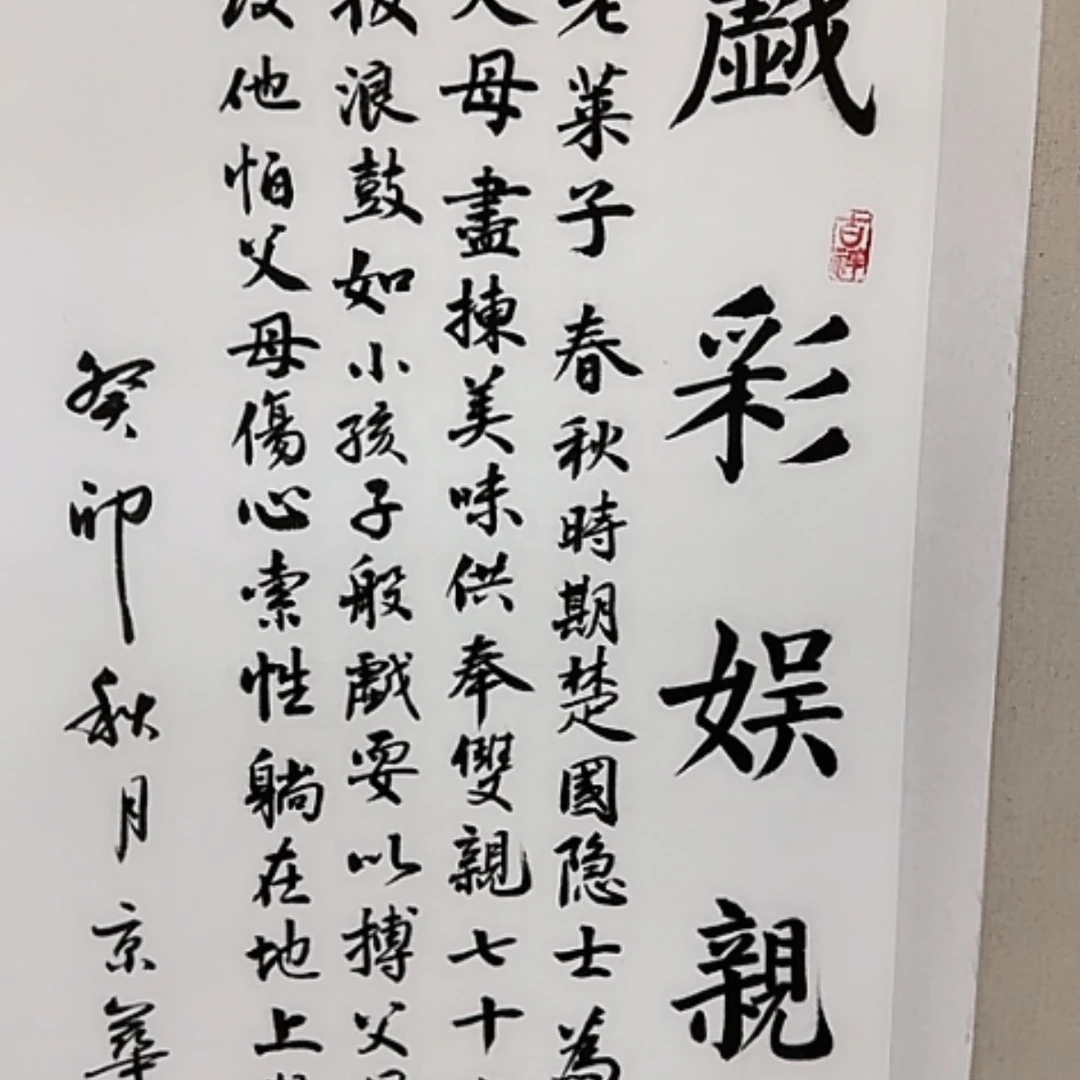 戲彩娛親
吉祥
老萊子春秋時期楚國隐士為
母盡揀美味供奉雙親七十
浪鼓如小孩子般戲耍以搏父
他怕父母傷心索性躺在地上
癸卯秋月京華